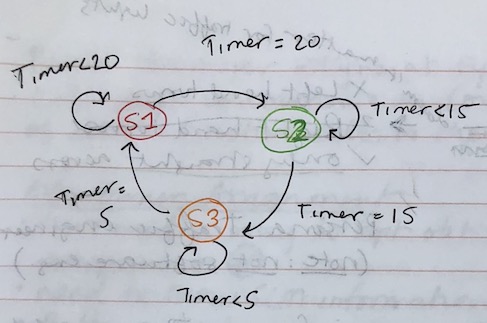 Timer = 20
Timer<20
S1
S2
Timer<15
Timer=
5
S3
Timer = 15
Timer<5